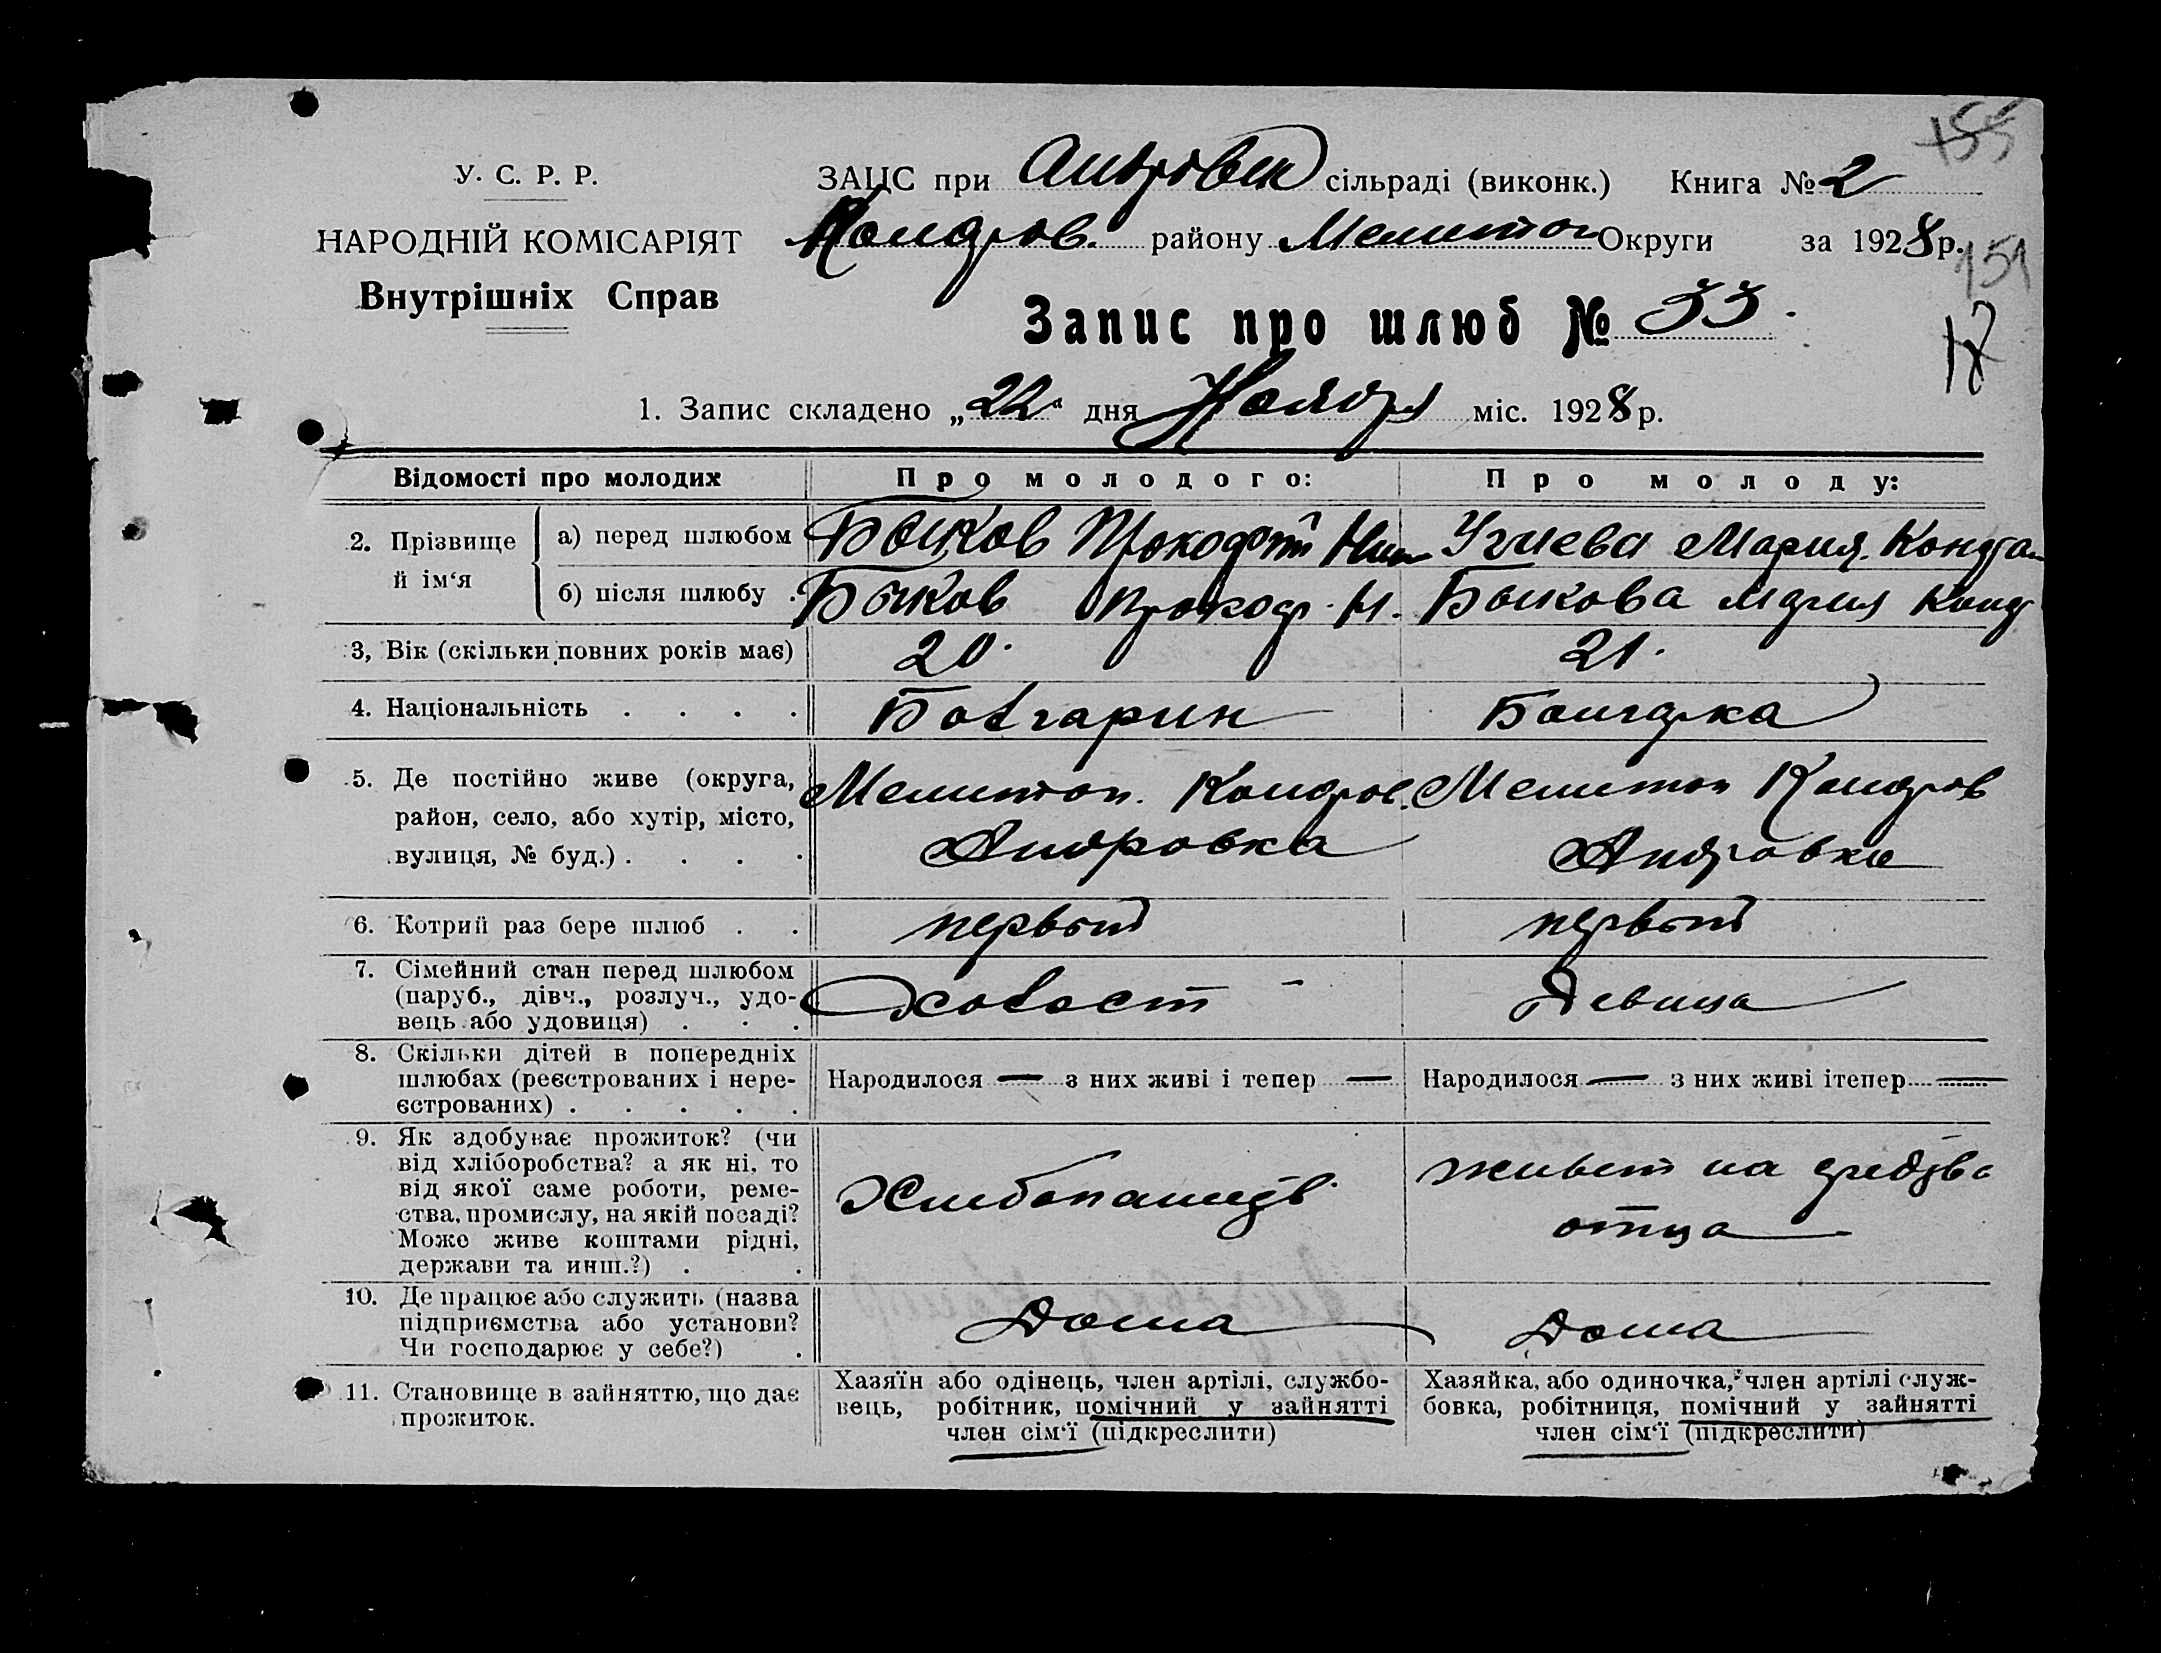 155
У. С. Р. Р.
НАРОДНІЙ КОМІСАРІЯТ
Внутрішніх Справ
ЗАЦС при Андровск сільраді (виконк.) Книга № 2
Коларов. району Мелитоп Округи за 1928 р.
151
Запис про шлюб № 33.
18
1. Запис складено „22“ дня Ноября міс. 1928 р.
Відомості про молодих Про молодого: Про молоду:
2. Прізвище й ім‘я
а) перед шлюбом Быков Прокофий Ник Узнева Мария Кондра
б) після шлюбу . Быков Прокоф. Н. Быкова Мария Конд
3, Вік (скільки повних років має) 20. 21.
4. Національність . . . . Болгарин Болгарка
5. Де постійно живе (округа, район, село, або хутір, місто, вулиця, № буд.) . . . .
Мелитоп. Коларов. Мелитоп Коларов
Андровка Андровке
6. Котрий раз бере шлюб . . первый первый
7. Сімейний стан перед шлюбом
(паруб., дівч., розлуч., удо-
вець або удовиця) . . . Холост - Девица
8. Скільки дітей в попередніх
шлюбах (реєстрованих і нере-
єстрованих) . . . . .
Народилося — з них живі і тепер — Народилося — з них живі ітепер —
9. Як здобуває прожиток? (чи
від хліборобства? а як ні, то
від якої саме роботи, реме-
ства, промислу, на якій посаді?
Може живе коштами рідні,
держави та инш.?) . .
Хлебопашеств. живет на средства
отца
10. Де працює або служить (назва
підприємства або установи?
Чи господарює у себе?) .
Дома Дома
11. Становище в зайняттю, що дає
прожиток.
Хазяїн або одінець, член артілі, службо-
вець, робітник, помічний у зайнятті
член сім‘ї (підкреслити)
Хазяйка, або одиночка, член артілі служ-
бовка, робітниця, помічний у зайнятті
член сім‘ї (підкреслити)